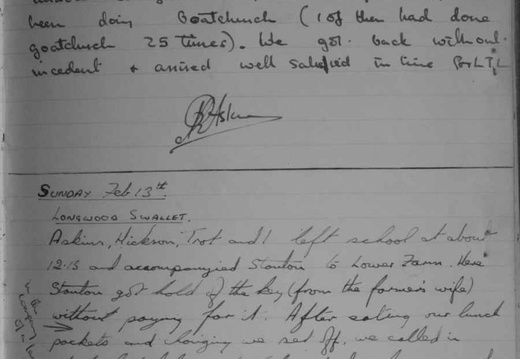 been doing Goatchurch (1 of them had done
goatchurch 25 times). We got back without
incedent & arrived well satisfied in time for
RAskins
SUNDAY Feb 13th.
LONGWOOD SWALLET.
Askins, Hickson, Trot and I left school at about
12.15 and accompanyied Stanton to Lower Farm. Here
Stanton got hold of the key (from the farmer's wife)
without paying for it. After eating our lunch
packets and changing we set off. we called in